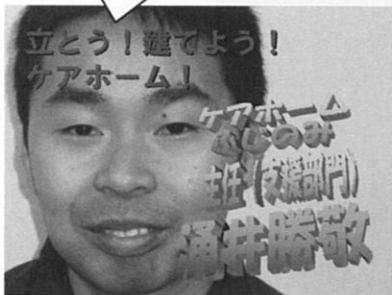 立とう！建てよう！
ケアホーム！
ケアホーム
むじのみ
主任（支援部門）
桶井勝敬